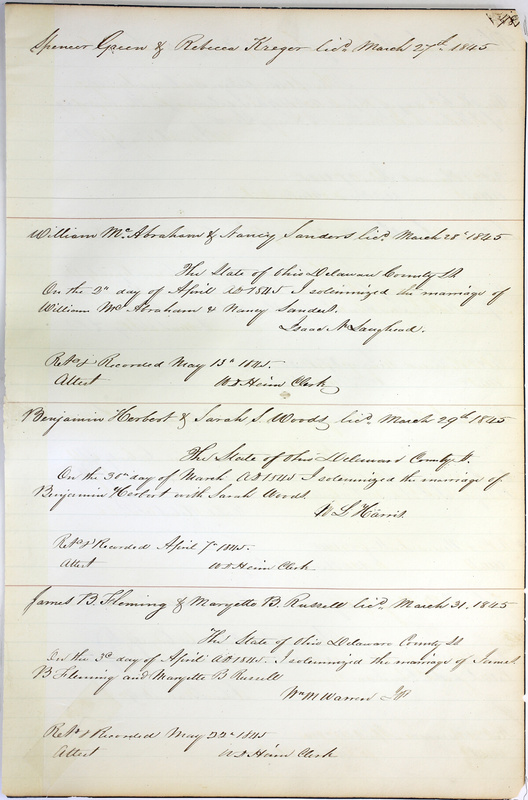 48
Spencer Green & Rebecca Kreger licd. March 27th 1845
William McAbraham & Nancy Sanders licd. March 28th 1845
The State of Ohio Delaware County SS
On the 2d day of April AD 1845 I solemnized the marriage of
William McAbraham & Nancy Sanders.
Isaac N Laughead.
Retd & Recorded May 15th 1845.
Attest W D Heim Clerk
Benjamin Herbert & Sarah S. Woods licd. March 29th 1845
The State of Ohio Delaware County SS.
On the 30th day of March AD 1845 I solemnized the marriage of
Benjamin Herbert with Sarah Woods
W L Harris
Retd & Recorded April 7th 1845.
Attest W D Heim Clerk
James B. Fleming & Maryette B. Russell licd. March 31. 1845
The State of Ohio Delaware County SS
On the 3d day of April AD 1845. I solemnized the marriage of James
B Fleming and Maryette B Russell
Wm M Warren JP
Retd & Recorded May 22d 1845
Attest W D Heim Clerk